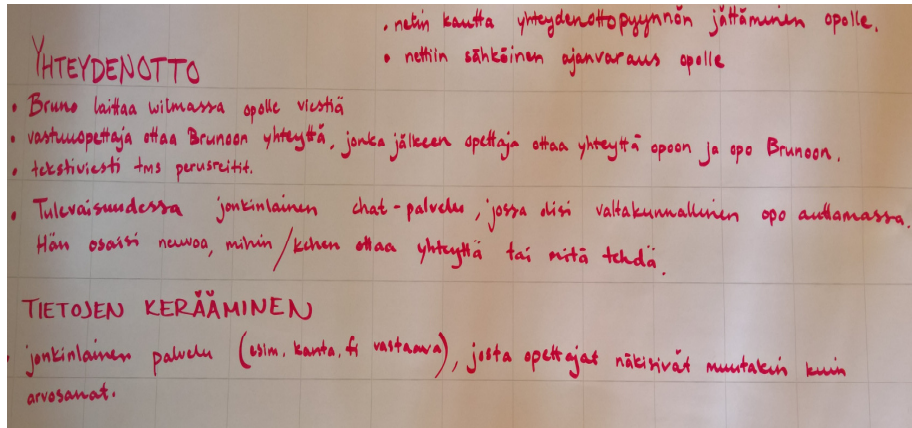 • netin kautta yhteydenottopyynnön jättäminen opolle.
• nettiin sähköinen ajanvaraus opolle
YHTEYDENOTTO
• Bruno laittaa wilmassa opolle viestiä
• vastuuopettaja ottaa Brunoon yhteyttä, jonka jälkeen opettaja ottaa yhteyttä opoon ja opo Brunoon.
• tekstiviesti tms perusreitit.
• Tulevaisuudessa jonkinlainen chat-palvelu, jossa olisi valtakunnallinen opo auttamassa.
Hän osaisi neuvoa, mihin/kehen ottaa yhteyttä tai mitä tehdä.
TIETOJEN KERÄÄMINEN
• jonkinlainen palvelu (esim. kanta.fi vastaava), josta opettajat näkisivät muutakin kuin
arvosanat.